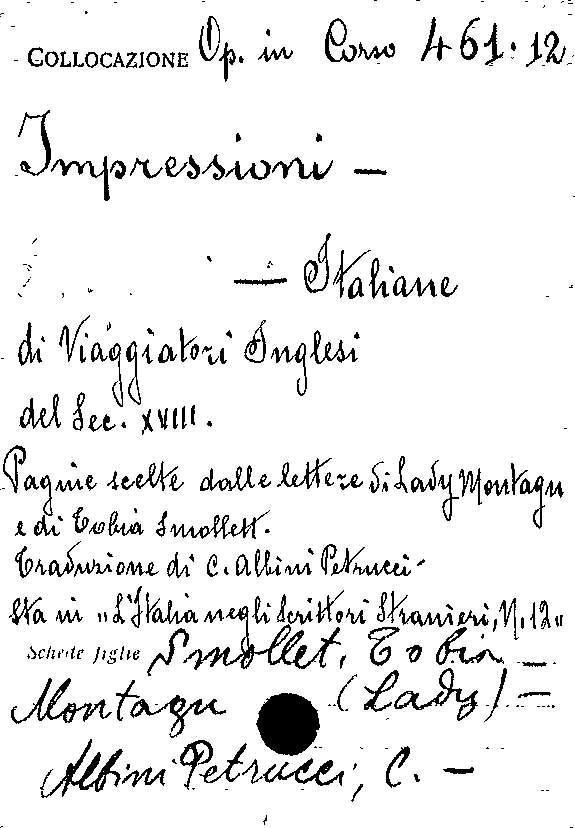 COLLOCAZIONE Op. in Corso 461.12
Impressioni —
— Italiane
di Viaggiatori Inglesi
del Sec. XVIII.
Pagine scelte dalle lettere di Lady Montagu
e di Tobia Smollett.
Traduzione di C. Albini Petrucci-
Sta in "L'Italia negli Scrittori Stranieri, N. 12"
Schede figlie Smollet, Tobia —
Montagu (Lady) —
Albini Petrucci, C. —